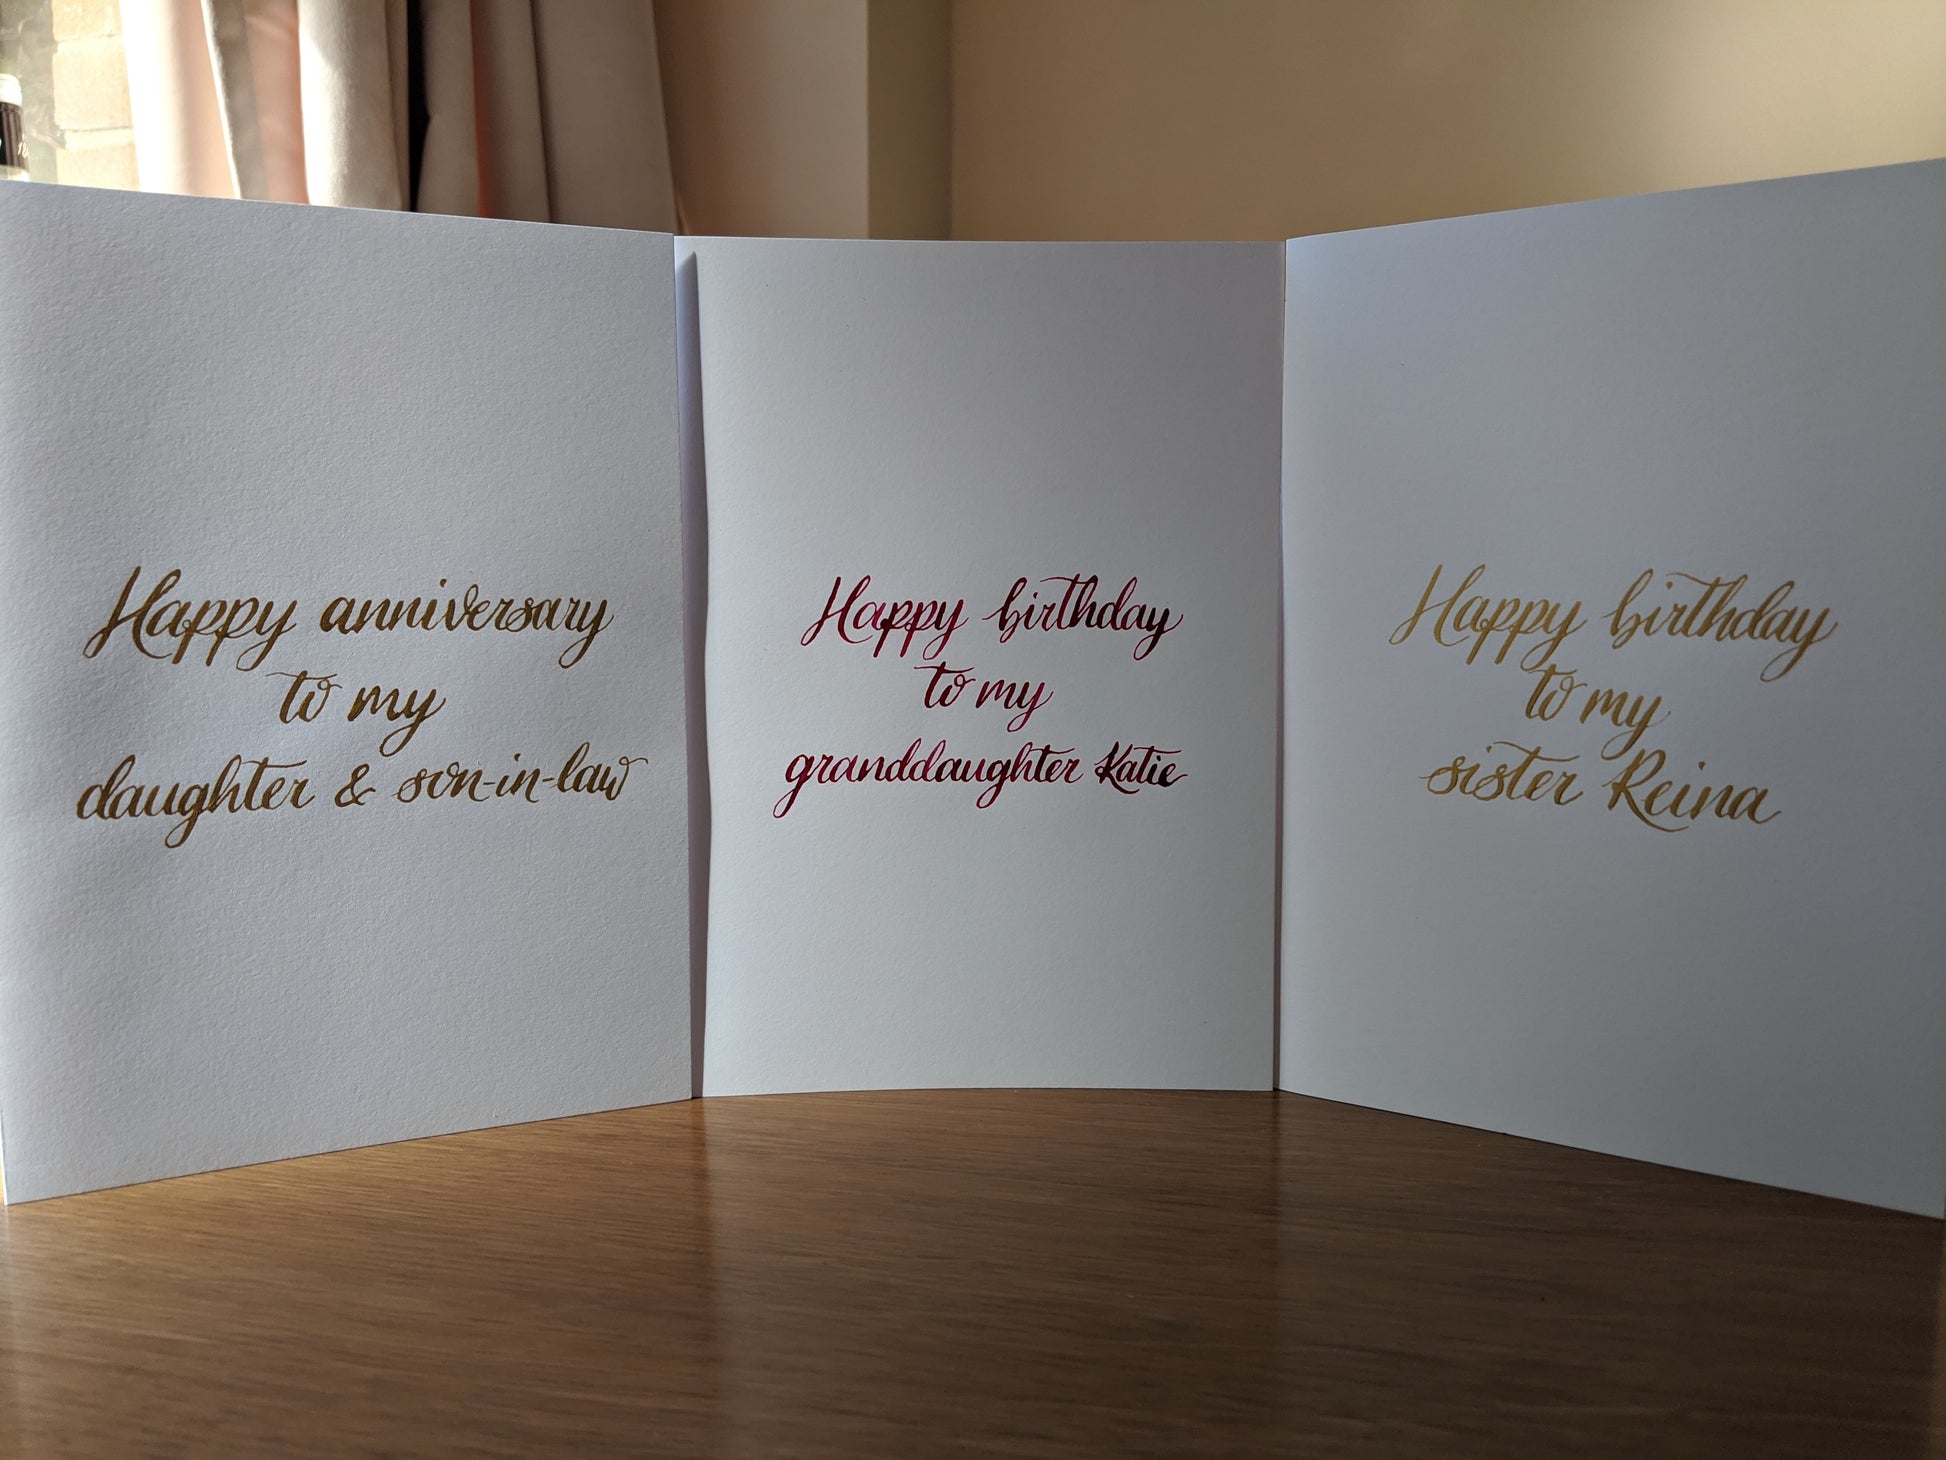 Happy anniversary
to my
daughter & son-in-law
Happy birthday
to my
granddaughter Katie
Happy birthday
to my
sister Reina